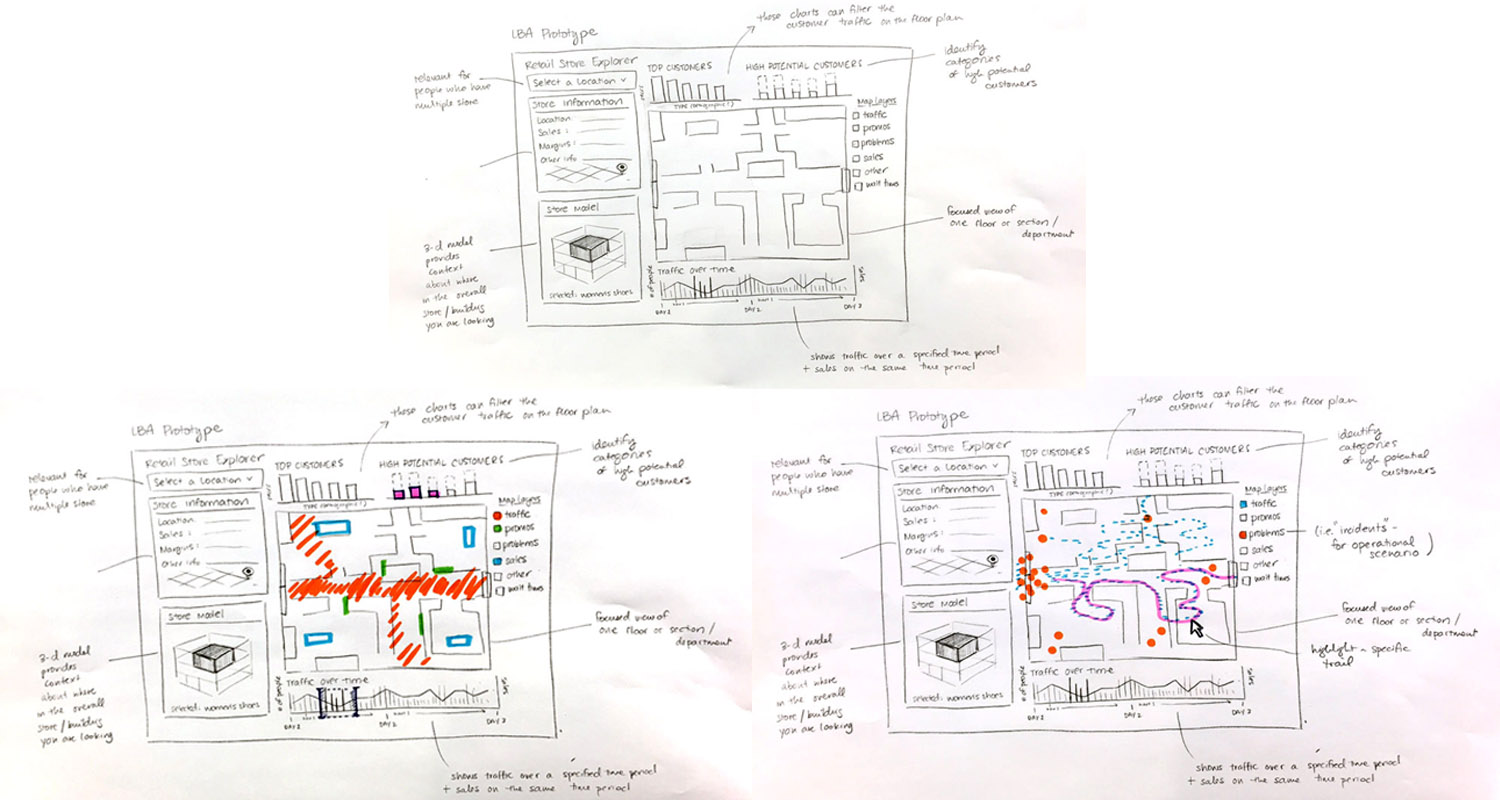 these charts can filter the
customer traffic on the floor plan
LBA Prototype
identify
categories
of high potential
customers
relevant for
people who have
multiple store
Retail Store Explorer
TOP CUSTOMERS
HIGH POTENTIAL CUSTOMERS
Select a Location
Store Information
Location:
Sales:
Margins:
Other info
Map Layers
traffic
promos
problems
sales
other
wait times
Store Model
selected: womens shoes
3-d model
provides
context
about where
in the overall
store/building
you are looking
focused view of
one floor or section/
department
Traffic over time
# of people
sales
DAY 1
DAY 2
DAY 3
shows traffic over a specified time period
+ sales on the same time period
these charts can filter the
customer traffic on the floor plan
LBA Prototype
identify
categories
of high potential
customers
relevant for
people who have
multiple store
Retail Store Explorer
TOP CUSTOMERS
HIGH POTENTIAL CUSTOMERS
Select a Location
Store Information
Location:
Sales:
Margins:
Other info
Map Layers
traffic
promos
problems
sales
other
wait times
Store Model
selected: womens shoes
3-d model
provides
context
about where
in the overall
store/building
you are looking
focused view of
one floor or section/
department
Traffic over time
# of people
sales
DAY 1
DAY 2
DAY 3
shows traffic over a specified time period
+ sales on the same time period
these charts can filter the
customer traffic on the floor plan
LBA Prototype
identify
categories
of high potential
customers
relevant for
people who have
multiple store
Retail Store Explorer
TOP CUSTOMERS
HIGH POTENTIAL CUSTOMERS
Select a Location
Store Information
Location:
Sales:
Margins:
Other info
Map Layers
traffic
promos
problems
sales
other
wait times
(i.e. "incidents" -
for operational
scenario)
Store Model
selected: womens shoes
3-d model
provides
context
about where
in the overall
store/building
you are looking
focused view of
one floor or section/
department
highlight a specific
trail
Traffic over time
# of people
sales
DAY 1
DAY 2
DAY 3
shows traffic over a specified time period
+ sales on the same time period